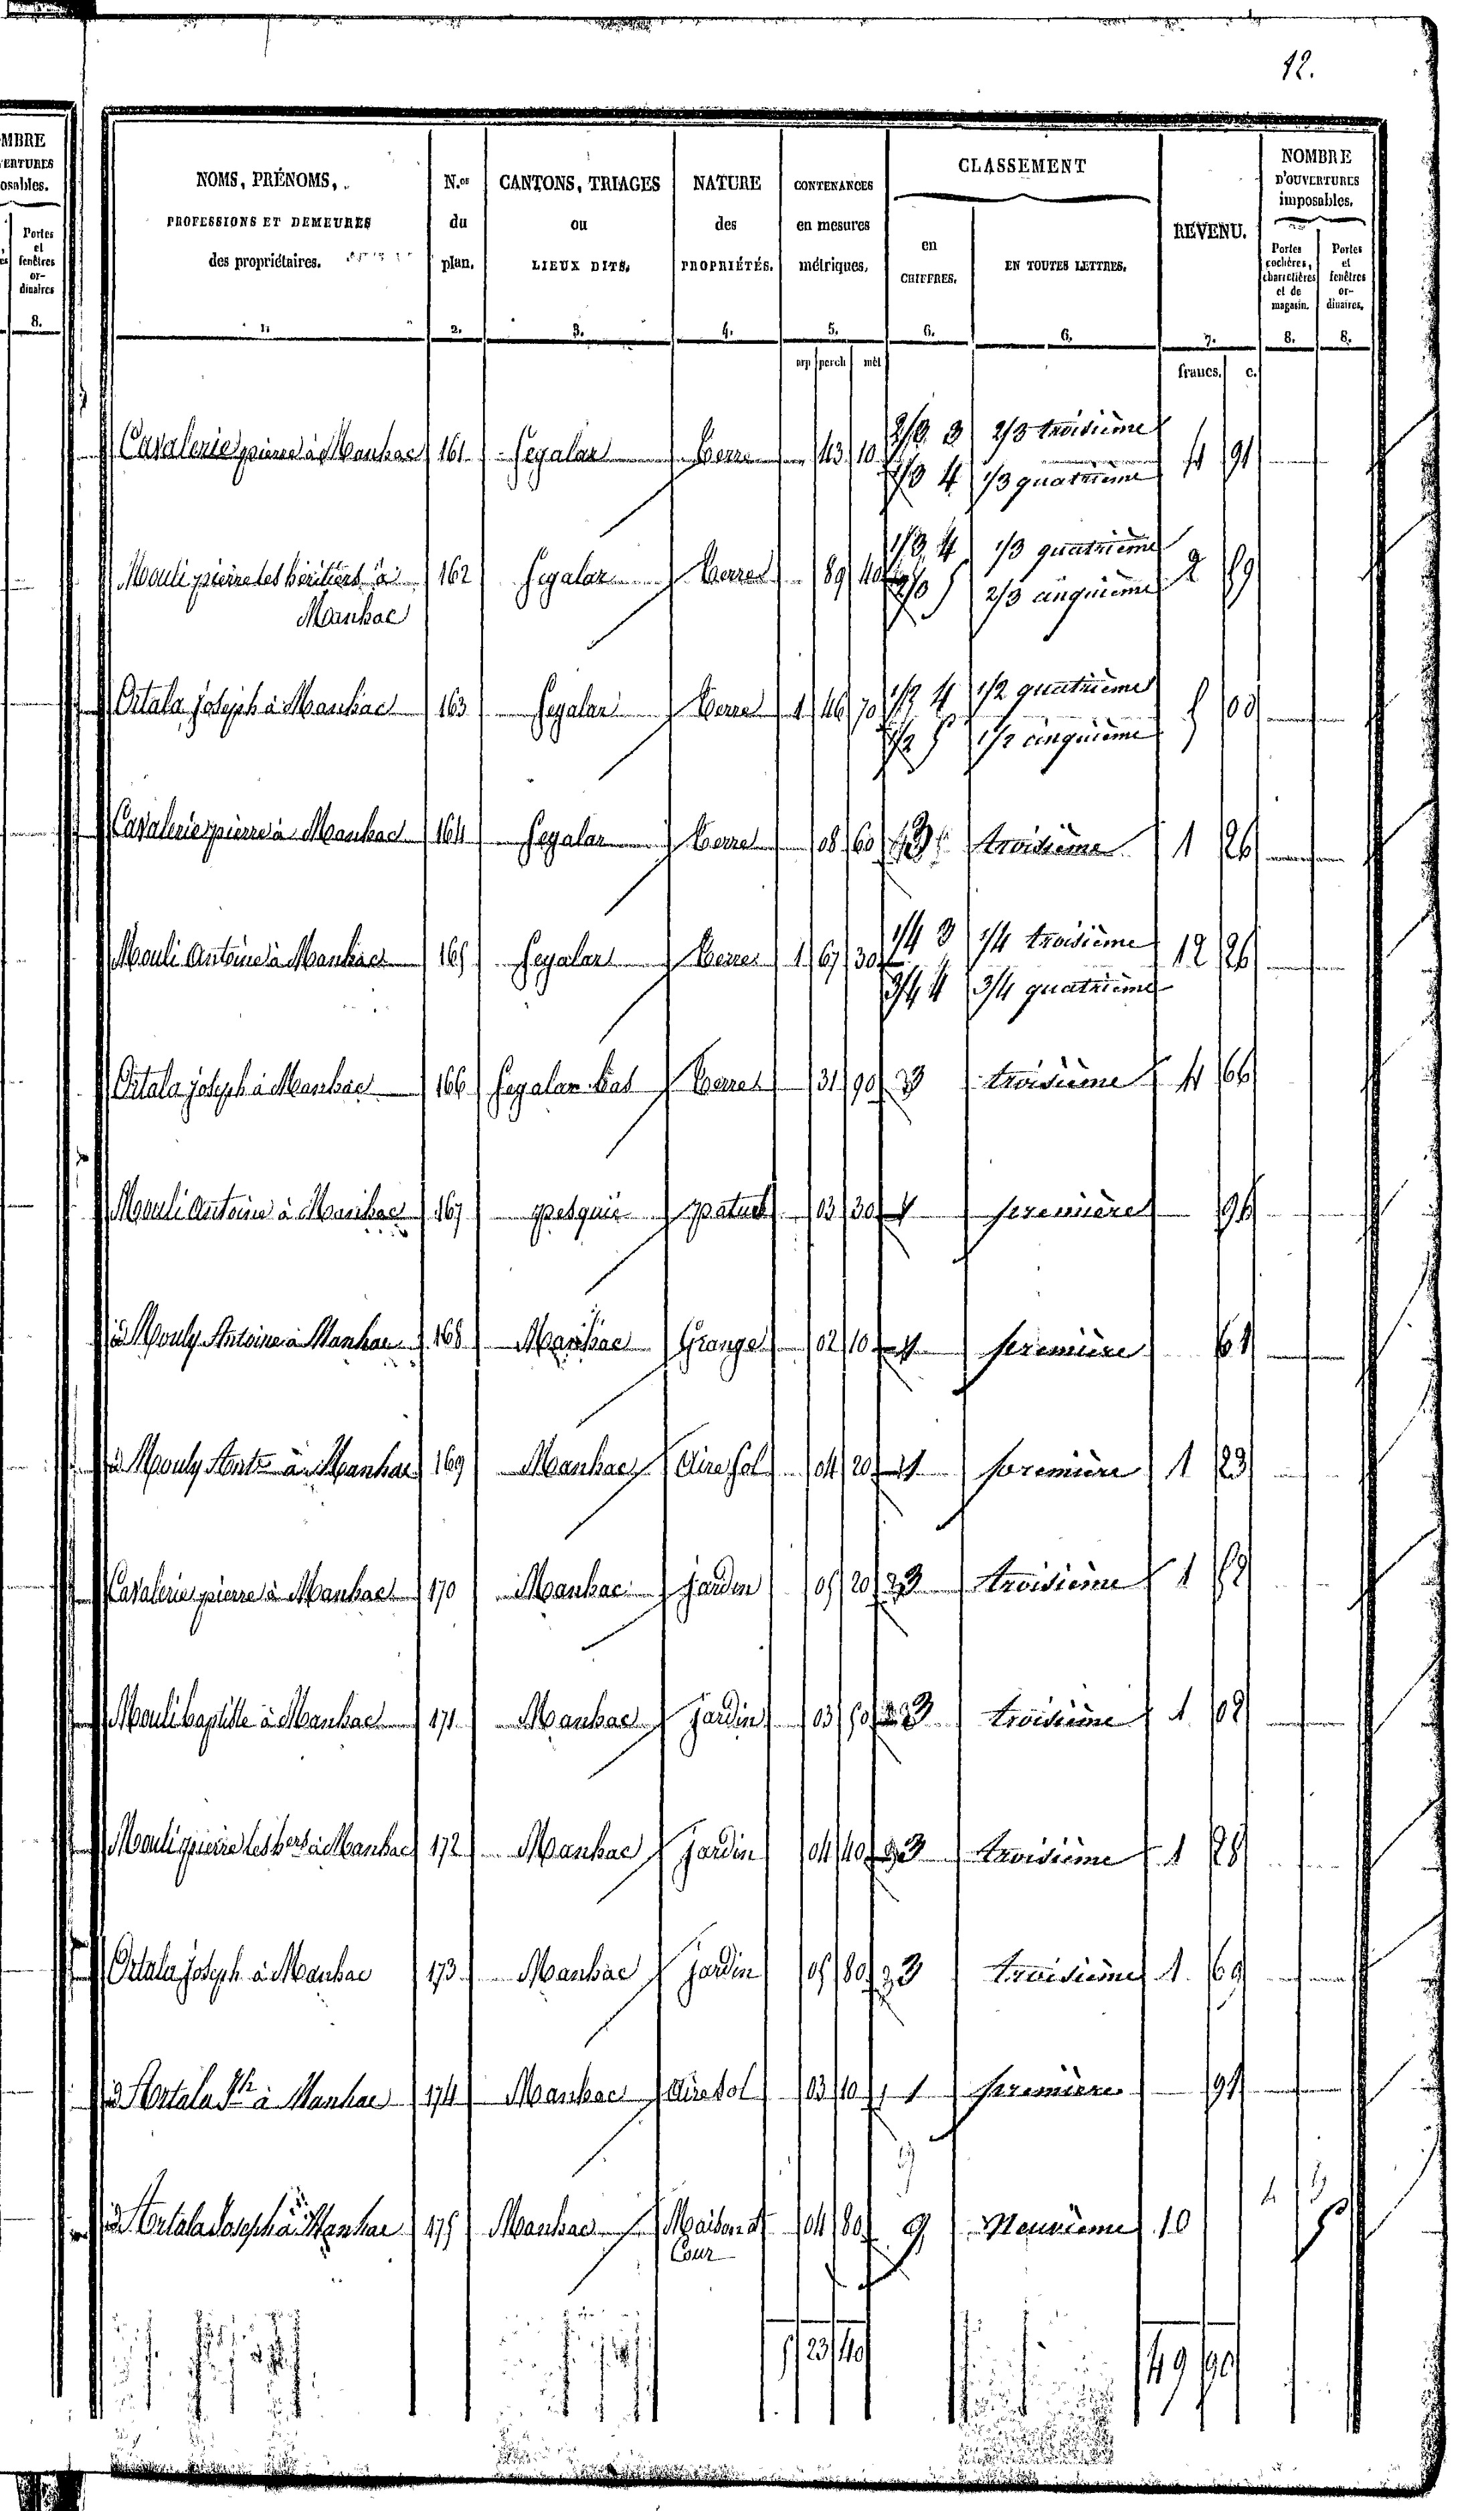 12.
MBRE
VERTURES
osables.
Portes
et
fenêtres
or-
dinaires
8.
NOMS, PRÉNOMS,
PROFESSIONS ET DEMEURES
des propriétaires.
1.
N.os
du
plan.
2.
CANTONS, TRIAGES
ou
LIEUX DITS.
3.
NATURE
des
PROPRIÉTÉS.
4.
CONTENANCES
en mesures
métriques.
5.
CLASSEMENT
en
CHIFFRES.
6.
EN TOUTES LETTRES.
6.
REVENU.
7.
NOMBRE
D'OUVERTURES
imposables.
Portes
cochères,
charretières
et de
magasin.
8.
Portes
et
fenêtres
or-
dinaires.
8.
arp perch mèt francs. c.
2/3 3 2/3 troisième
Cavalerie pierre à Manhac 161 Segalar terre 43 10 4 91
1/3 4 1/3 quatrième
1/3 4 1/3 quatrième
Mouli pierre les héritiers à 162 Segalar terre 89 40 2 89
Manhac 2/3 5 2/3 cinquième
1/2 4 1/2 quatrième
Ortala joseph à Manhac 163 Segalar terre 1 46 70 5 03
1/2 5 1/2 cinquième
Cavalerie pierre à Manhac 164 Segalar terre 08 60 3 troisième 1 26
1/4 3 1/4 troisième
Mouli Antoine à Manhac 165 Segalar terre 1 67 30 12 26
3/4 4 3/4 quatrième
Ortala joseph à Manhac 166 Segalar bas terre 31 90 3 troisième 4 66
Mouli Antoine à Manhac 167 pesquié patus 03 30 1 première 96
Mouly Antoine à Manhac 168 Manhac Grange 02 10 1 première 61
Mouly Ant.e à Manhac 169 Manhac Aire sol 04 20 1 première 1 23
Cavalerie pierre à Manhac 170 Manhac jardin 05 20 3 troisième 1 52
Mouli baptiste à Manhac 171 Manhac jardin 03 50 3 troisième 1 02
Mouli pierre les hers à Manhac 172 Manhac jardin 04 40 3 troisième 1 28
Ortala joseph à Manhac 173 Manhac jardin 05 80 3 troisième 1 69
Hortala Jh à Manhac 174 Manhac Aire sol 03 10 1 première 91
Hortala Joseph à Manhac 175 Manhac Maison et 04 80 9 Neuvième 10 5
Cour
5 23 40 49 90